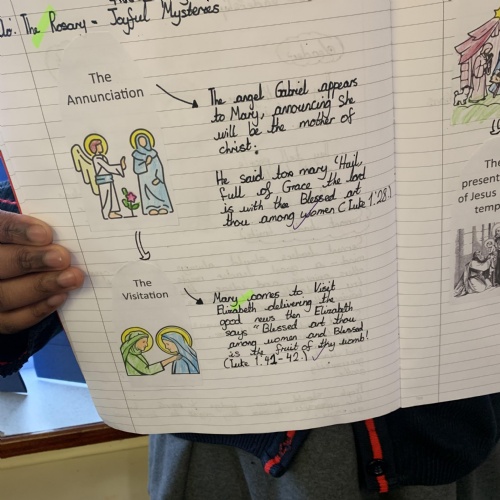 Lo: The Rosary - Joyful Mysteries
The
Annunciation
The angel Gabriel appears
to Mary, announcing She
will be the mother of
christ.
He said too mary 'Hail,
full of Grace the lord
is with thee Blessed art
thou among women (Luke 1:28)
The
Visitation
Mary comes to Visit
Elizabeth delivering the
good news then Elizabeth
says "Blessed art thou
among women and Blessed
is the fruit of thy womb!
(Luke 1:41-42)
The
present
of Jesus
temp